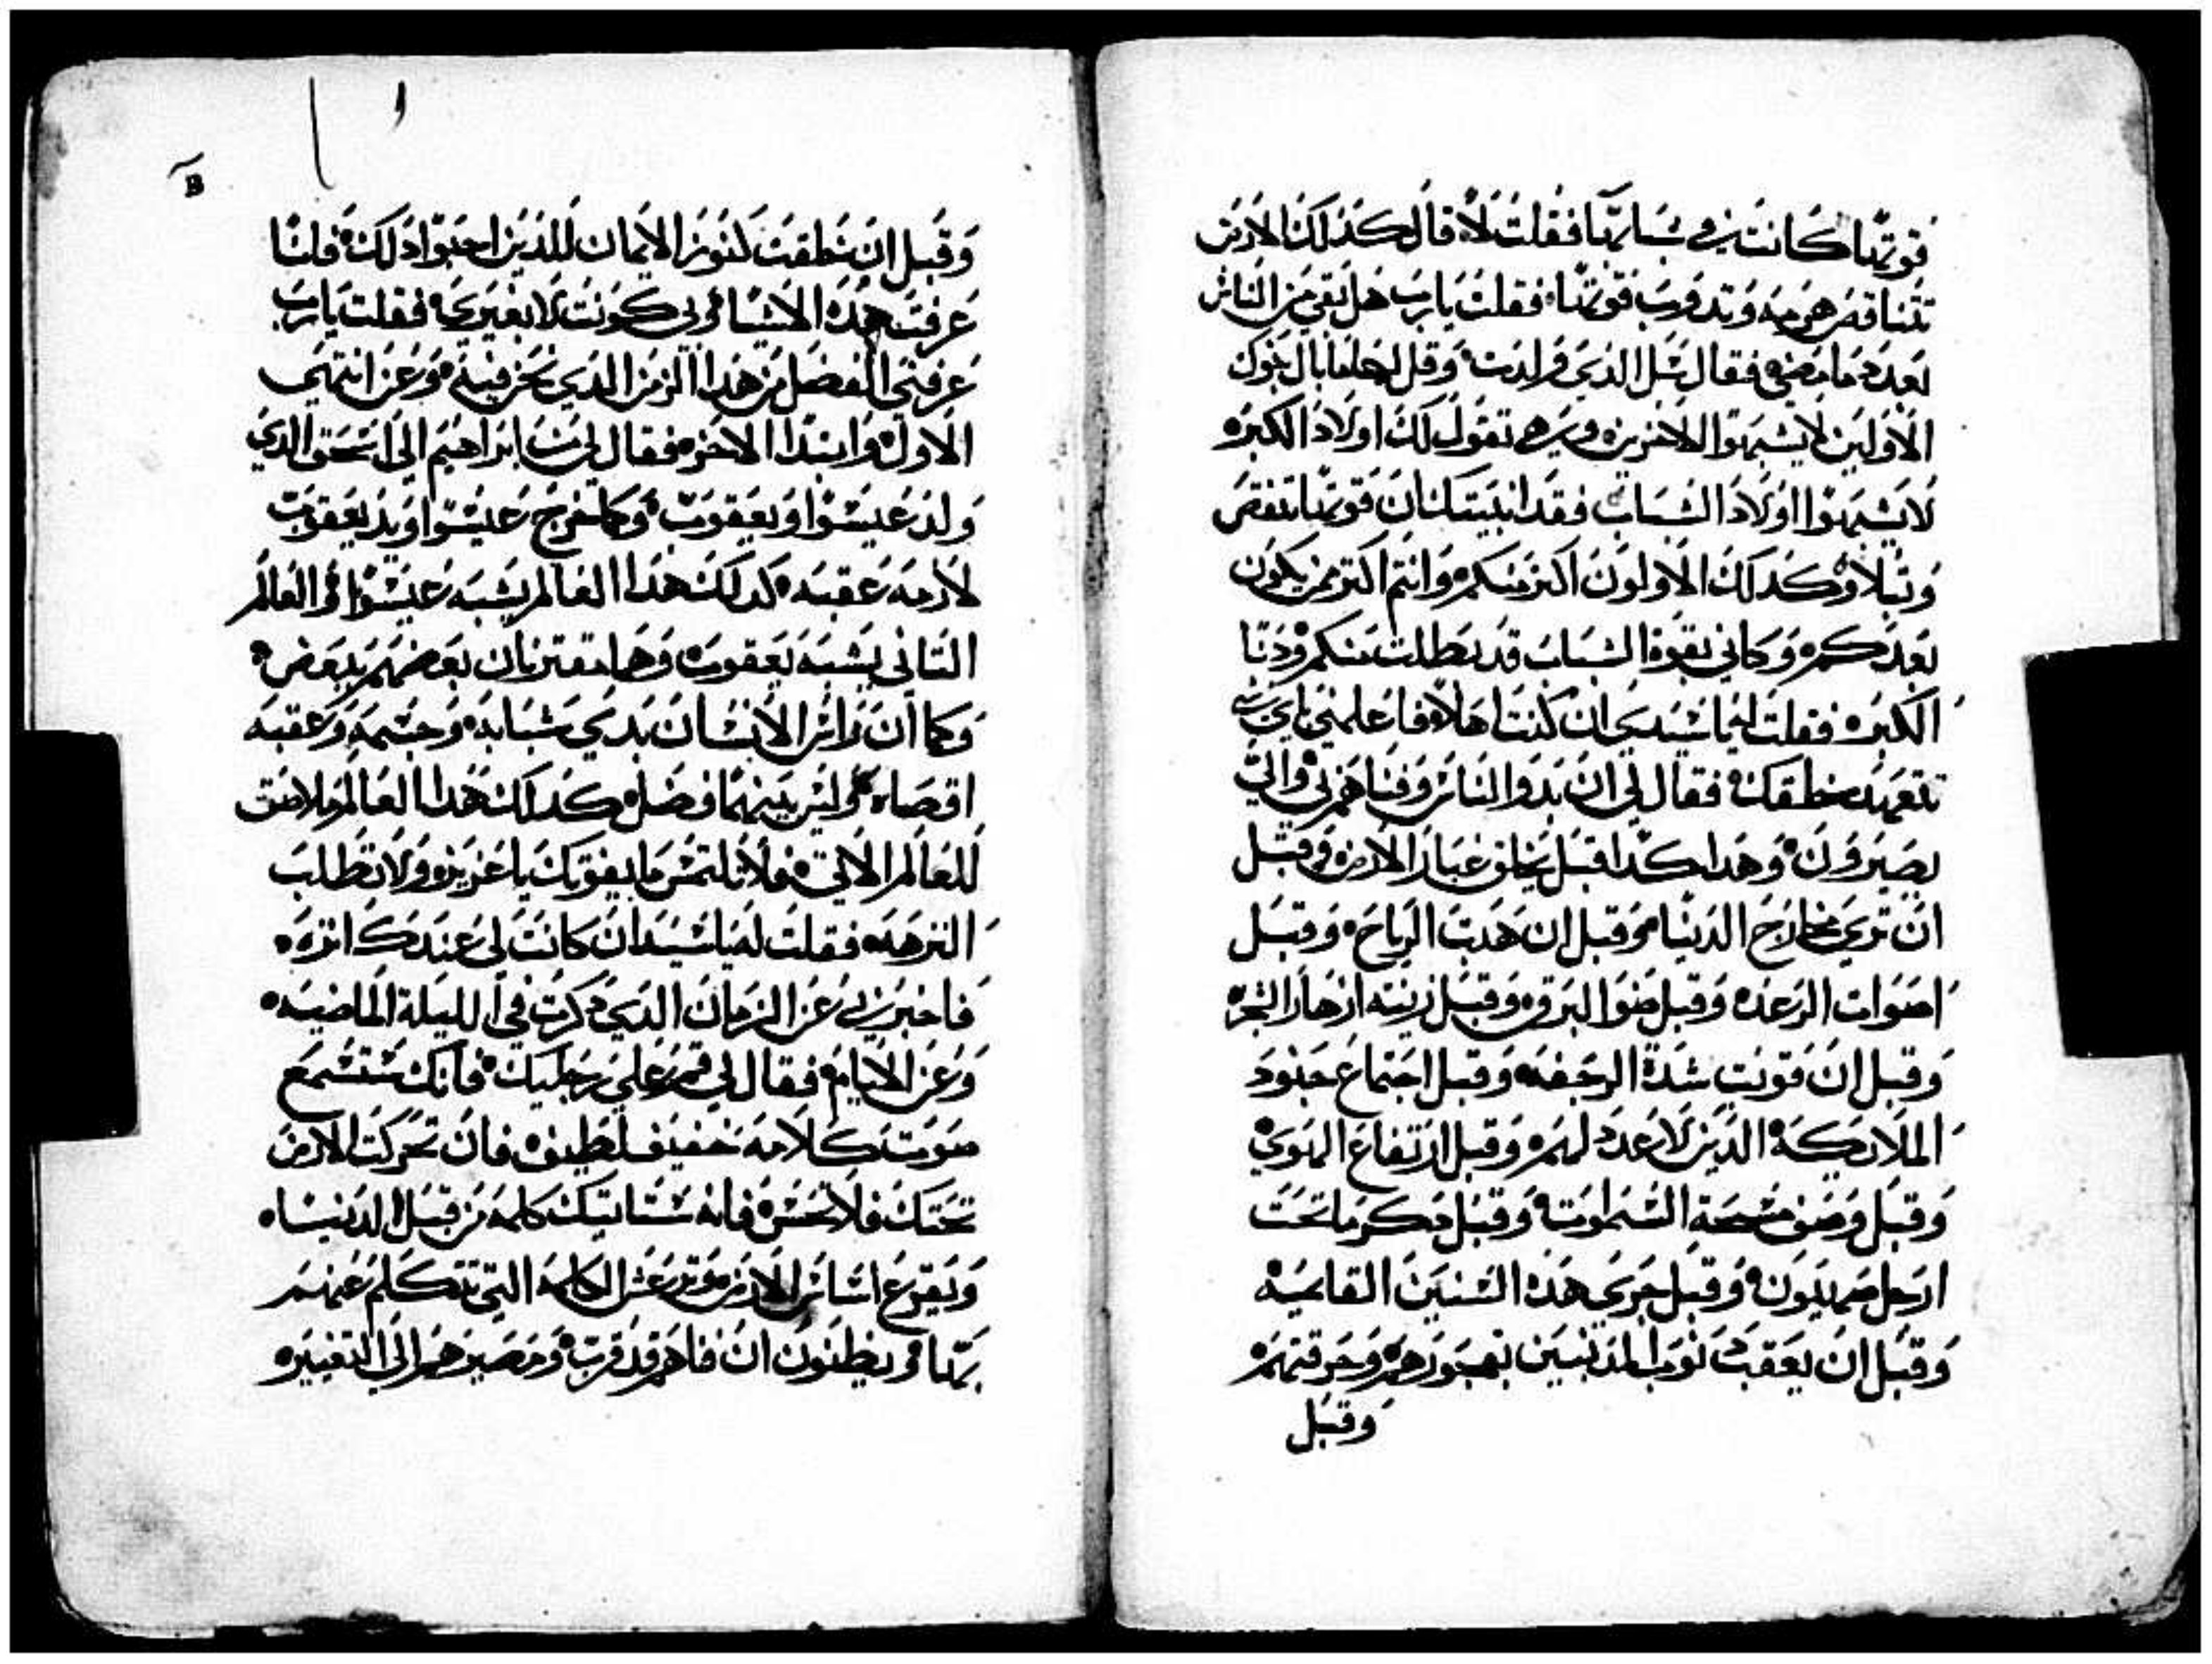 قوتها كانت في شبابها فقلت لا قال كذلك الارض
تتناقص هي ميه وتدوب قوتها فقلت يارب هل بقي من الناس
بعدد ما مضي فقال سل الذي ولدت وقل لها ما بال بنوك
الاولين لا يشبهوا الاخرين وهي تقول لك اولاد الكبره
لا يشبهوا اولاد الشباب فقد انبيتك ان قوتها تنقص
وتبلا وكدلك الاولون اكتر منكم وانتم اكتر ممن يكون
بعدكم وكاني بقوة الشباب قد بطلت منكم ودنا
الكبره فقلت ايها سيدي ان كنت اهلا فاعلمني باي شي
تتعهد خلقك فقال لي ان بدو الناس وفناهم بي والي
يصيرون وهدا كدا قبل يخلق غبار الارض وقبل
ان تري مخارج الدنيا وقبل ان هدت الرياح وقبل
اصوات الرعد وقبل ضوا البرق وقبل زينته ازهار الشجر
وقبل ان قويت شدة الرجفه وقبل اجتماع جنود
الملايكة الدين لا عدد لهم وقبل ارتفاع الهوي
وقبل وصف مسحة السموات وقبل دكر ما تحت
ارجل صهيون وقبل جري هده السنين القايمه
وقبل ان يعقب نوب المدنبين بفجورهم وحرقتهم
وقبل
وقبل ان خلقت كنوز الايمان للدين احبوا دلك فلما
عرفت هده الاشيا وبي كونت لا بغيري فقلت يارب
عرفني الفصل من هدا الزمن الدي نحن فيه وعن انتهي
الاول وابتدا الاخر فقال لي من ابراهيم الي اسحق الدي
ولد عيسوا ويعقوب وكما خرج عيسوا ويد يعقوب
لازمه عقبه كدلك هدا العالم يشبه عيسوا والعالم
التاني يشبه يعقوب وهما مقترنان بعضهم ببعض
وكما ان راس الانسان بدي شبابه وجسمه وعقبه
اقصاه وليس بينهما فصل كدلك هدا العالم ملاصق
للعالم الاتي فلا تلتمس ما يفوتك يا عزيز ولا تطلب
النزهه فقلت له يا سيد ان كانت لي عندك انزه
فاخبرني عن الزمان الدي دكرت في الليلة الماضيه
وعن الايام فقال لي قم علي رجليك فانك ستسمع
صوت كلامه خفيف لطيف فان تحركت الارض
تحتك فلا تخش فانه ستاتيك كلمه من قبل الدنيا
ويفزع اساس الارض وترعش الكلمه التي تتكلم عنهم
بها ويظنون ان فناهم قد قرب ومصيرهم الي التغيير